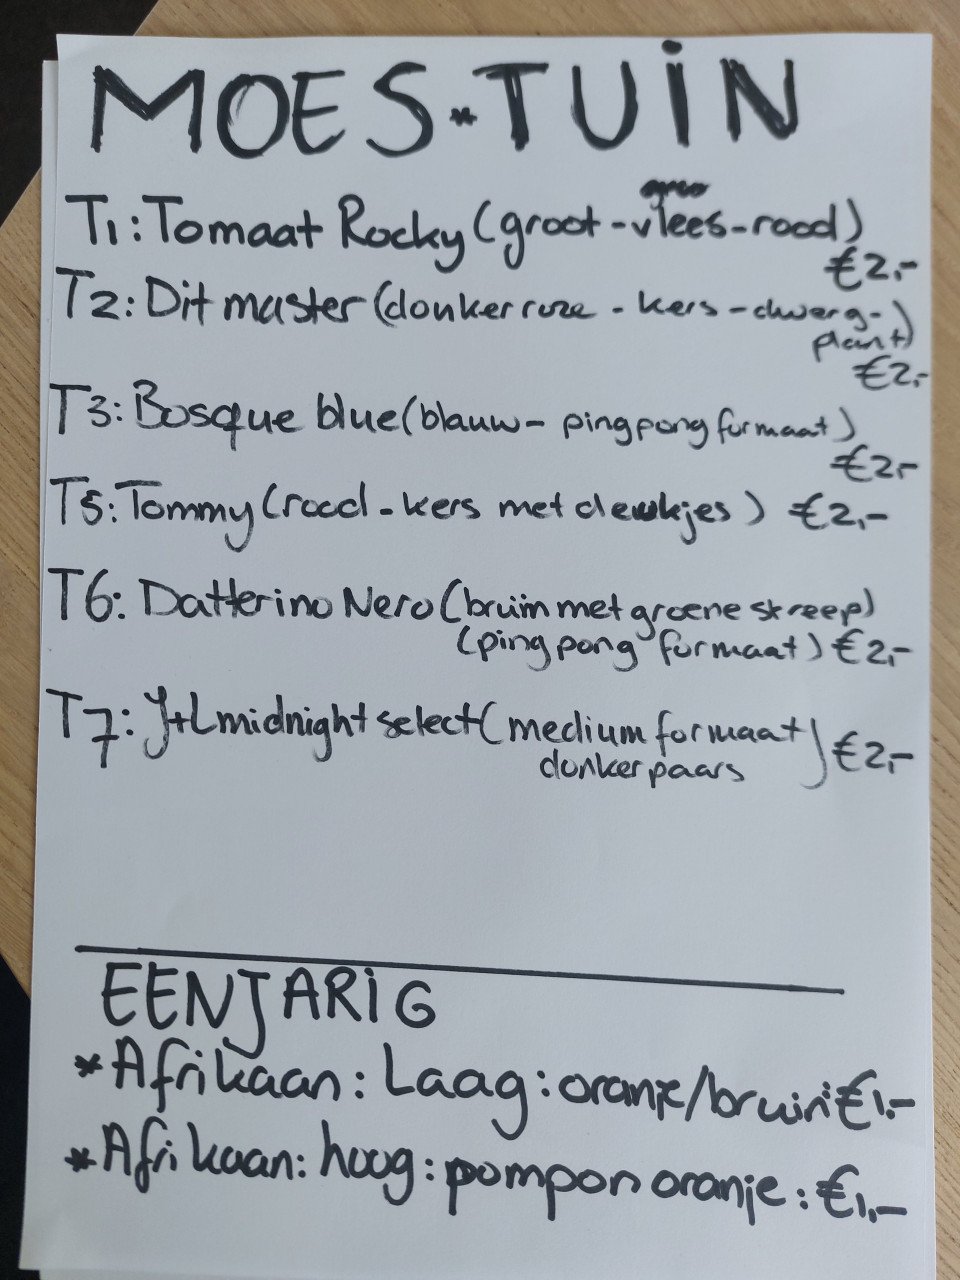 MOES*TUIN
T1: Tomaat Rocky (groot-vlees-rood)
€2,-
T2: Dit master (donker roze - kers - dwerg-
plant)
€2,-
T3: Bosque blue (blauw - pingpong formaat)
€2,-
T5: Tommy (rood - kers met deukjes) €2,-
T6: Datterino Nero (bruin met groene streep)
(pingpong formaat) €2,-
T7: J+L midnight select (medium formaat
donker paars) €2,-
EENJARIG
* Afrikaan: Laag: oranje/bruin €1,-
* Afrikaan: hoog: pompon oranje: €1,-